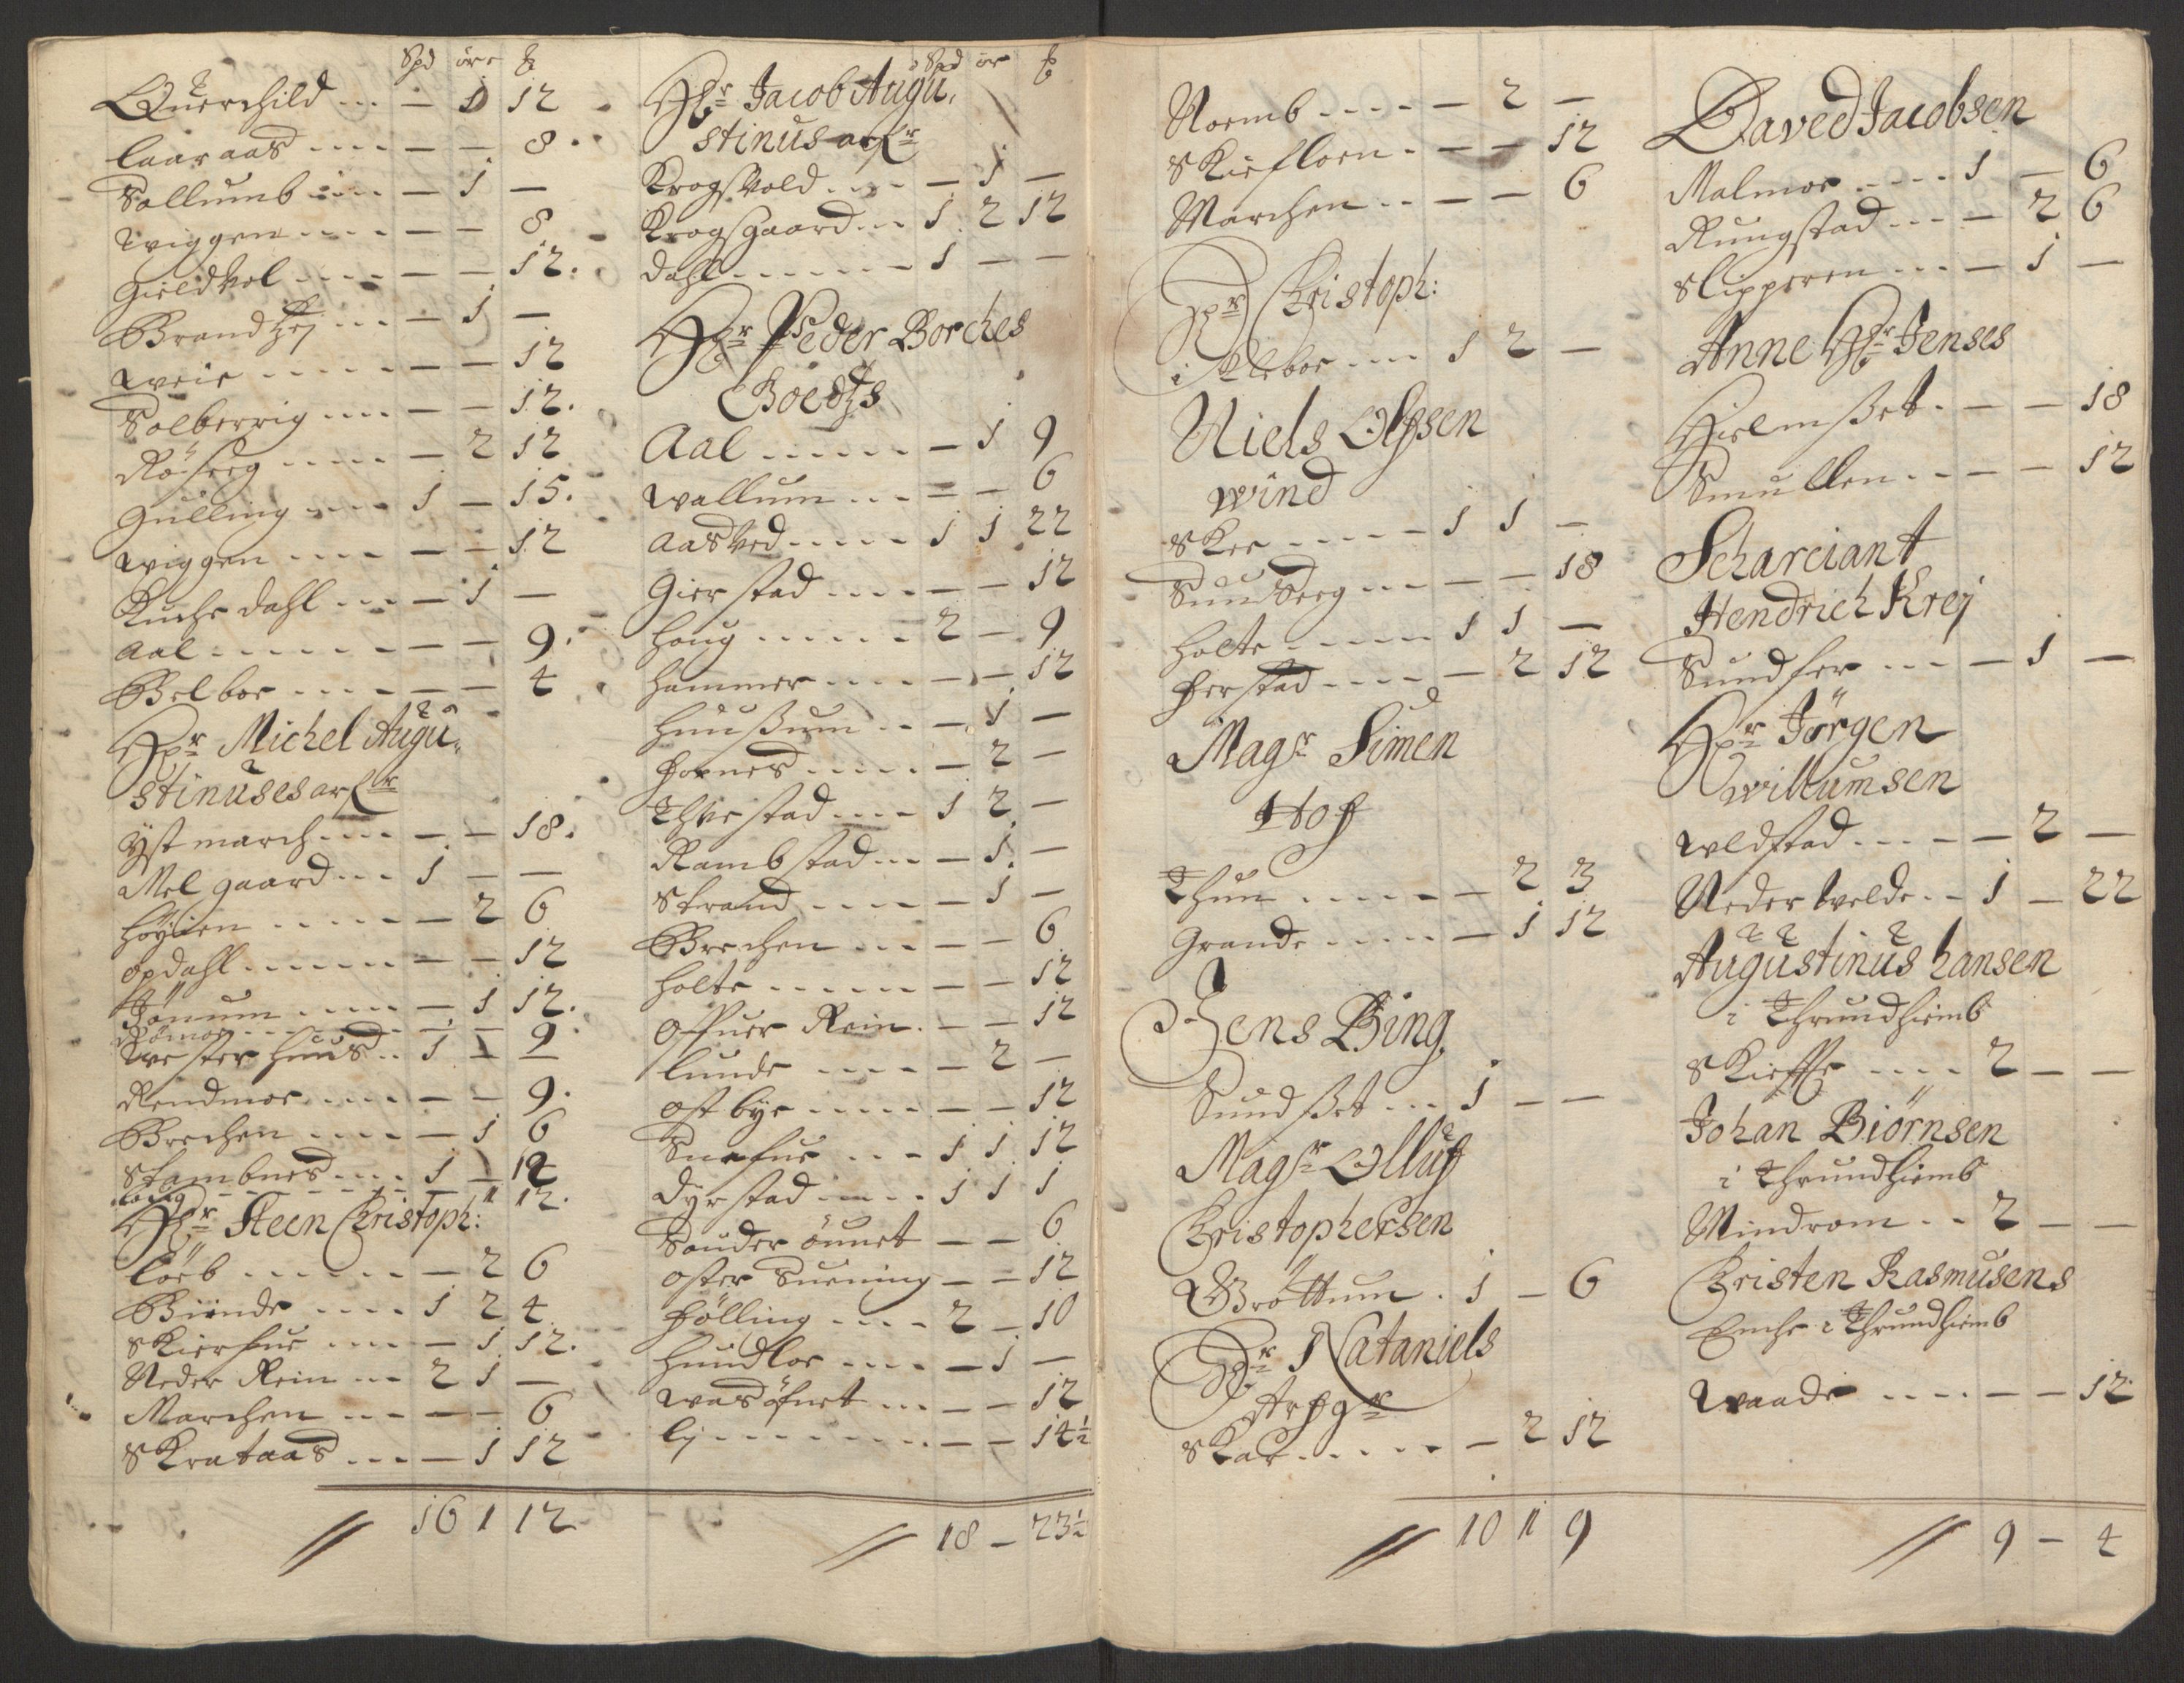 Spd öre ₰
Querchild ... – 1 12
Laaraas .... – – 8
Sollumb .... – 1 –
Wiggen .... – – 8
Gieldvol .... – – 12.
Brandhej ... – 1 –
Weie ..... – – 12
Solberrig .... – – 12.
Röberg ..... – 2 12
Gulling .... 1 – 15.
Wiggen .... – – 12
Kuchedahl ... – 1 –
Aal ...... – – 9.
Belboe .... – – 4
Hr Michel Augu,
stinuses arfr
Ystmarch .... – – 18.
Melgaard ... 1 – –
Höyien ..... – 2 6
Opdahl ...... – – 12
Tönum .... – 1 12.
Römoe ...... – – 9.
Westerhuus .. 1 – –
Rendmoe .... – – 9.
Brechen .... – 1 6
Stambnes ... 1 – 12
12.
Hr Steen Christoph:
Löeb ...... – 2 6
Biinde .... 1 2 4
Skierhue .... – 1 12.
Neder Rein .. 2 1 –
Marchen .... – – 6
Skrataas ... – 1 12
16 1 12
Spd ör ₰
Hr Jacob Augu,
stinus arfr
Krogsvold .... – 1 –
Krogsgaard .. 1 2 12
Dahl ...... – 1 – –
Hr Peder Borches
Goedtz
Aal ...... – 1 9
Wallum ... – – 6
Aasved ..... 1 1 22
Gierstad .... – – 12
Houg ...... 2 – 9
Hammer .... – – 12
Huussum .. – 1 –
Hornes ..... – 2 –
Thvestad .... 1 2 –
Rambstad ... – 1 –
Strand .... – 1 –
Brechen .... – – 6
Holte ...... – – 12
Offuer Rein . – – 12
Lunde .... – 2 –
Ostbye ..... – – 12
Snefue ... 1 1 12
Dyrstad ..... 1 1 1
Sønder öunet – – 6
Oster Suening – – 12
Hölling .... 2 – 10
Hundloe .... – 1 –
Wasöfnet ... – – 12
Ly ........ – – 14½
18 – 23½
Noemb .... – 2 –
Skiefloen . – – 12
Marchen .. – – 6
Hr Christoph:
i Aleboe ... 1 2 –
Niels Olfsen
Wind
Skee .... – 1 1 –
Sundberg ... – – 18
Holte .... 1 1 –
Herstad .... – 2 12
Magr Simen
Hof
Thun ..... – 2 3
Grande .... – 1 12
Jens Bing
Sundset ... 1 – –
Magr Olluf
Christophersen
Gröttum . 1 – 6
Hr Nataniels
Arfgr
Skar ..... – 2 12
10 1 9
Daved Jacobsen
Malmoe .... 1 – 6
Rungstad ... – 2 6
Slipperen ... – 1 –
Anne Hr Jenses
Hielmset . – – 18
Smullen .. – – 12
Scharciant
Hendrich Krej
Sundfer ... – 1 –
Hr Jörgen
Willumsen
Wldstad .... – 2 –
Neder Velde .. 1 – 22
Augustinus Hansen
i Thrundhiemb
Skieffte .... 2 – –
Johan Biörnsen
i Thrundhiemb
Mindrom .. 2 – –
Christen Rasmusens
Enche i Thrundhiemb
Waade .... – – 12
9 – 4